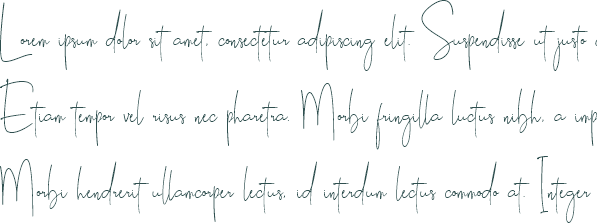 Lorem ipsum dolor sit amet, consectetur adipiscing elit. Suspendisse ut justo
Etiam tempor vel risus nec pharetra. Morbi fringilla luctus nibh, a imp
Morbi hendrerit ullamcorper lectus, id interdum lectus commodo at. Integer